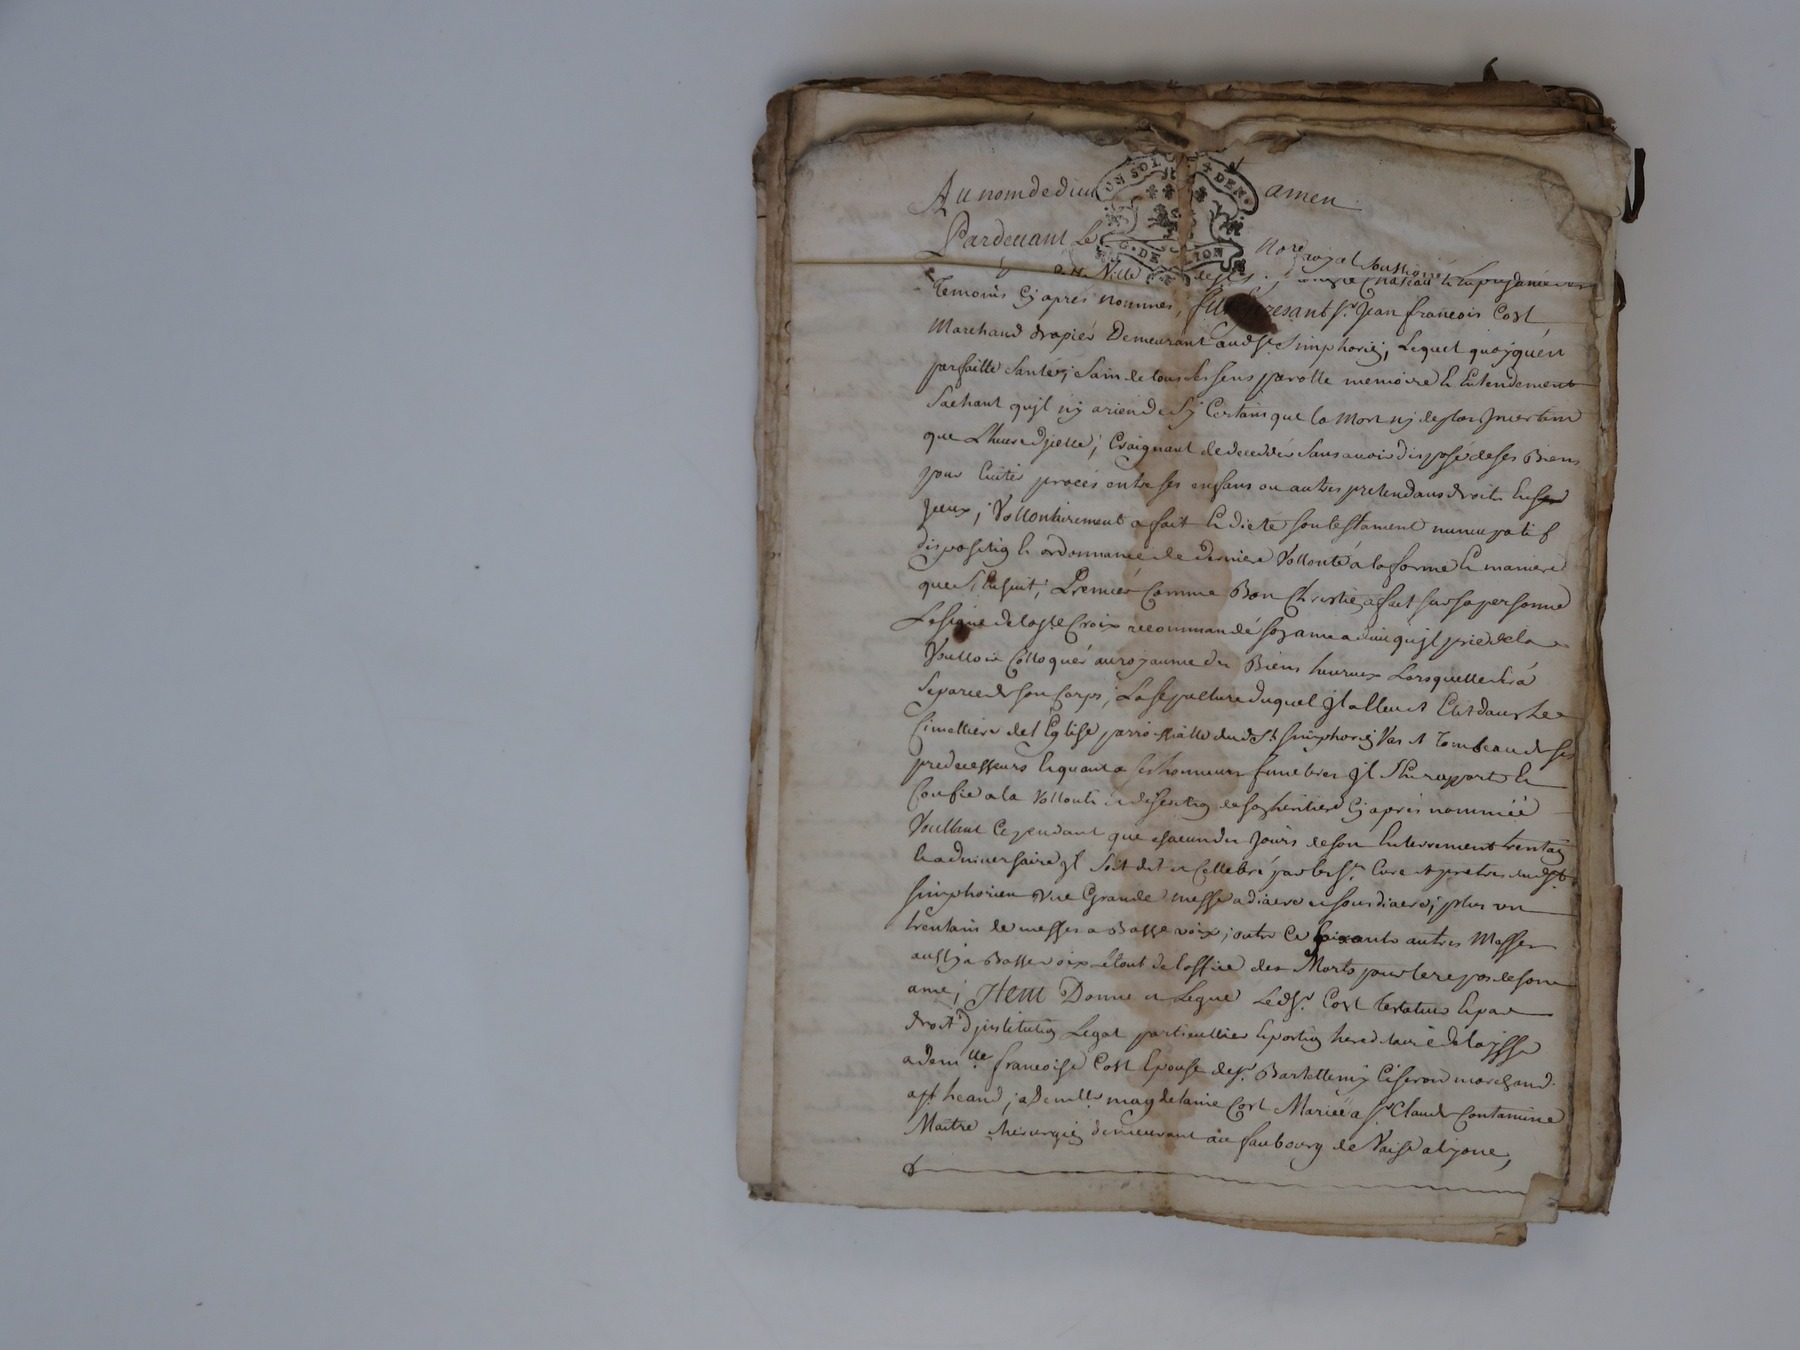 Au nom de dieu amen
UN SOL 4 DEN.
G. DE LION
Pardevant Le Nore royal soussigné
Temoins Cy apres nommes, fut presant Sr. Jean francois Cost
Marchand drapier Demeurant audSt. Simphorien, Lequel quoyquén
parfaitte santé, sain de tous ses sens parolle memoire & Entendement
Sachant qu'jl ny a rien de Sy Certain que la Mort ny de plus Jncertain
que L'heure d'jcelle; Craignant de decedér sans auoir disposé de ses Biens
pour Euiter procés entre ses enfans ou autres pretendans droits En
Jceux; Vollontairement a fait & dicté son testament nuncupatif
disposition & ordonnance de derniere Vollonté a la forme & maniere
que S'Ensuit; Premiér Comme Bon Chrestien a fait sur sa personne
Le signe de la Ste. Croix recommandé son ame a dieu qu'jl prie de la
Voulloir Colloquér au royaume des Biens heureux Lorsquelle sera
Separée de son Corps; La sepulture duquel Jl a Eleu & Elit dans le
Cimettiere de l'Eglise parroissialle dud St. Simphorien Vas & Tombeau de ses
predecesseurs & quant a ses honneurs funebres Jl S'En rapporte &
Confie a la Vollonté & discretion de son heritiere Cy aprés nommée
Voullant Cependant que chacun des Jours de son Enterrement trentain
& anniuersaire jl soit dit & Cellebré par les Srs. Curé & pretres dudSt.
Simphorien Vne Grande messe a diacre & sousdiacre; plus vn
trentain de messes a Basse voix; outre Ce soixante autres Messes
aussy a Basse voix étout de l'office des Morts pour le repos de son
ame; Item Donne & Legue LedSr. Cost testateur & par
droit d'jnstitution Legat particullier & portion hereditaire delaisse
a demlle. francoise Cost Epouse de Sr. Barthellemy Ciseron marchand
a demlle magdelaine Cost Mariée a Sr Claude Contamine
Maitre chirurgien demeurant au faubourg de Vaise a Lyon,